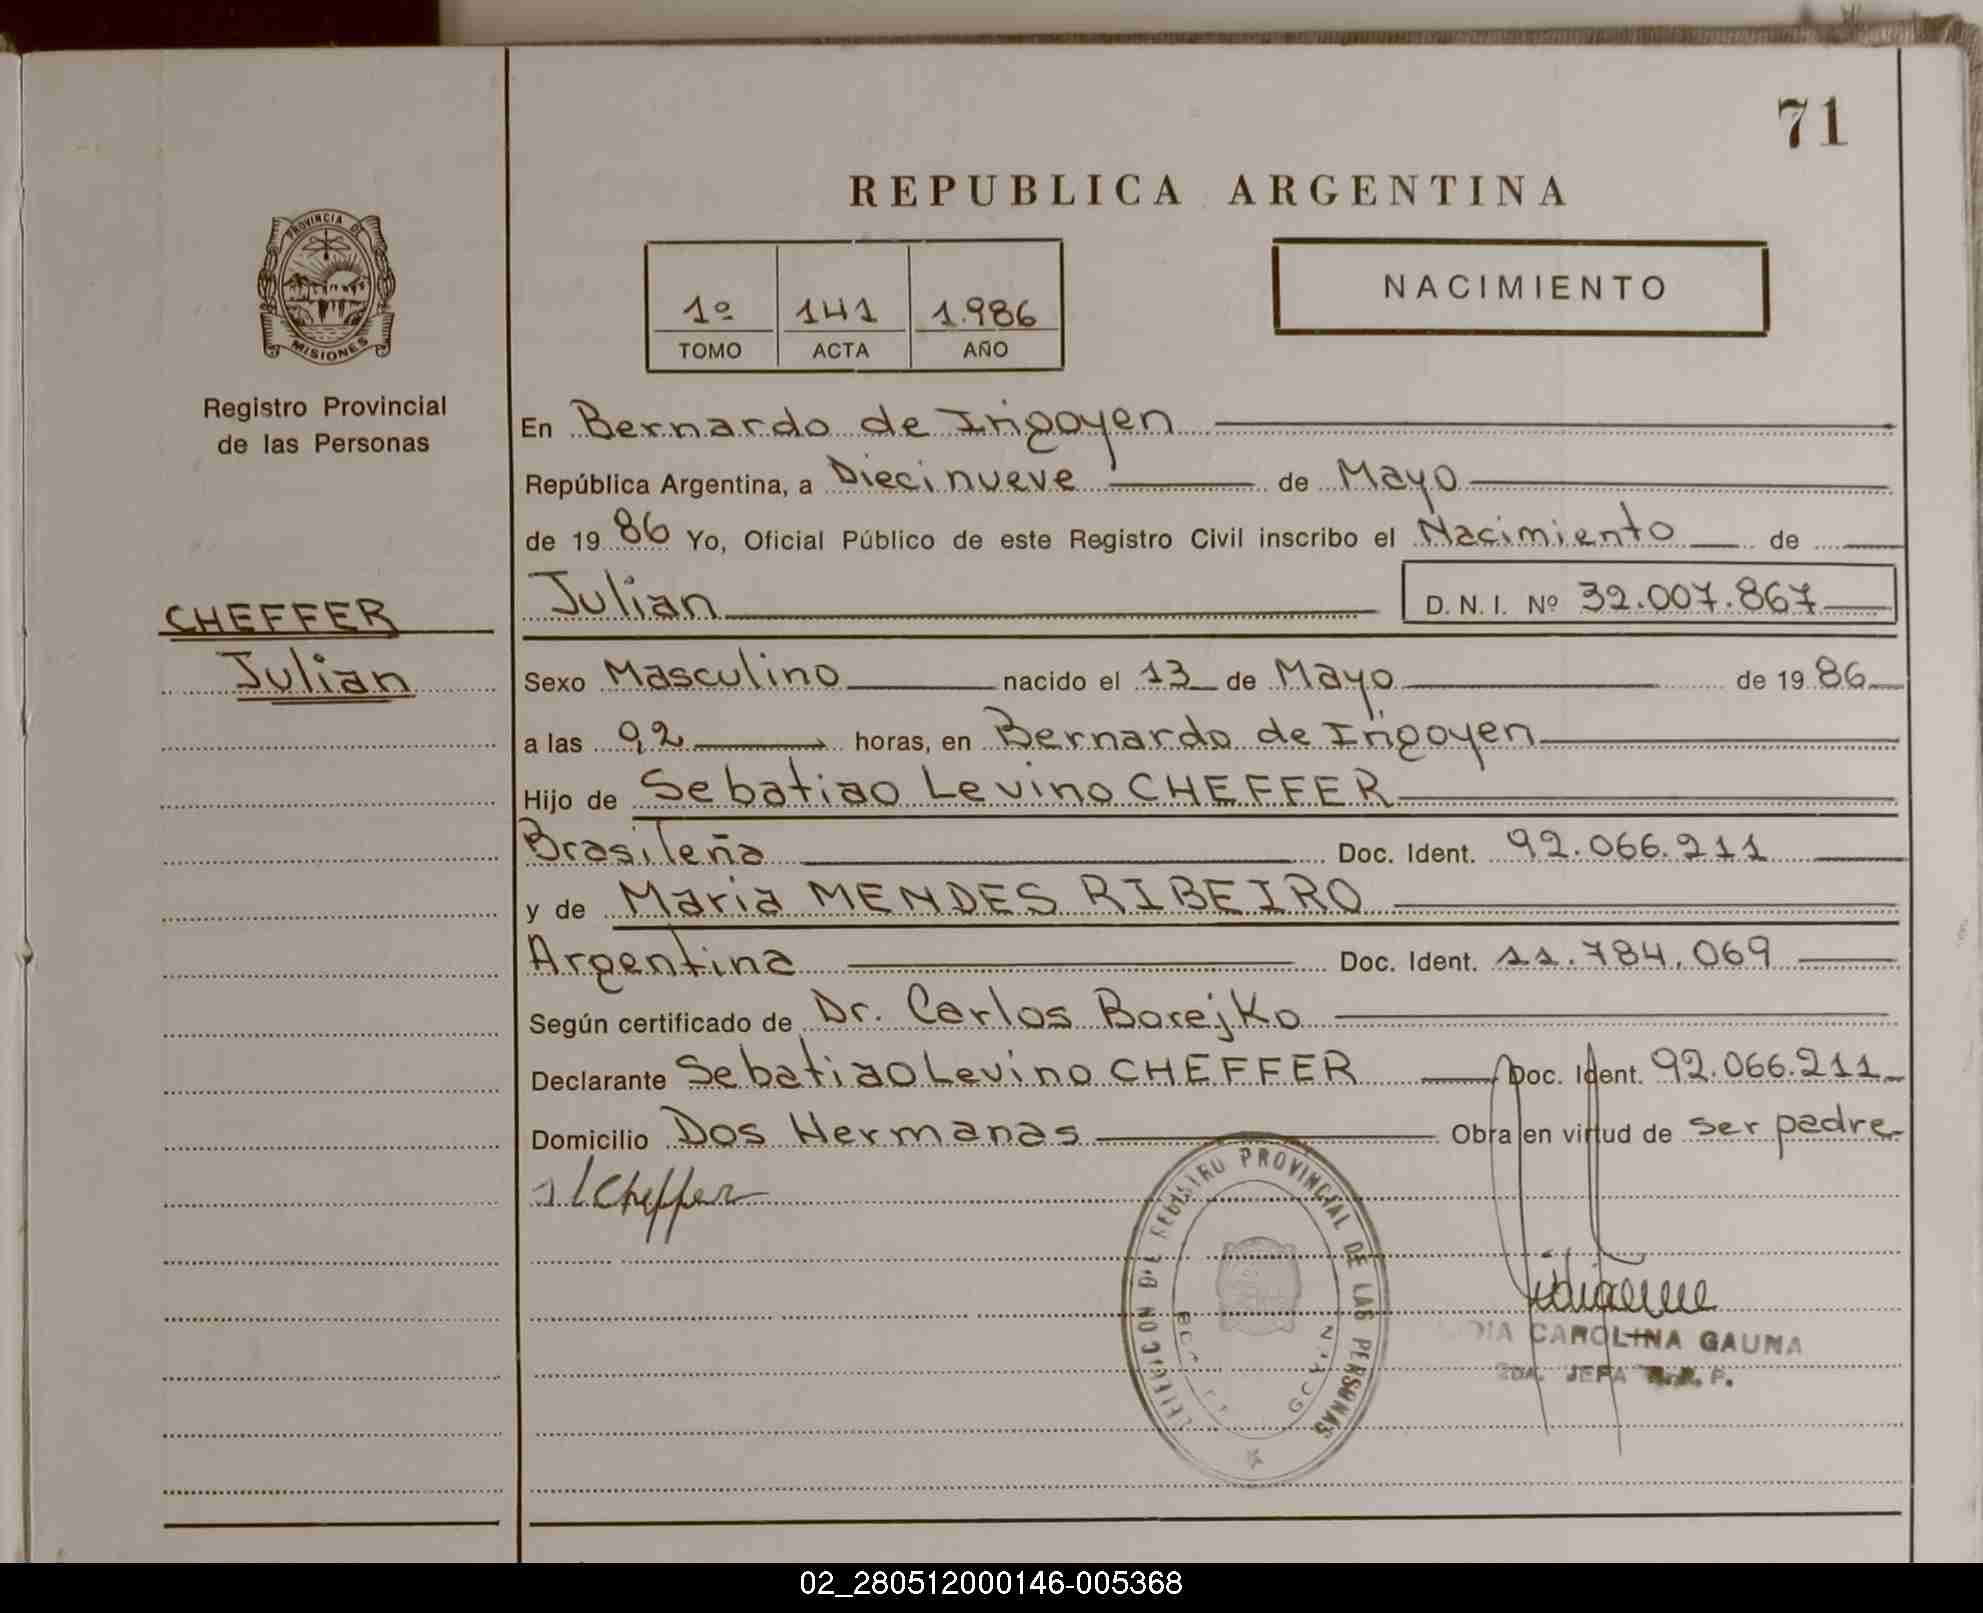 71
REPUBLICA ARGENTINA
PROVINCIA DE MISIONES
Registro Provincial
de las Personas
1º 141 1.986
TOMO ACTA AÑO
NACIMIENTO
En Bernardo de Irigoyen
República Argentina, a Diecinueve de Mayo
de 1986 Yo, Oficial Público de este Registro Civil inscribo el Nacimiento de
CHEFFER
Julian
Julian D.N.I. Nº 32.007.867
Sexo Masculino nacido el 13 de Mayo de 1986
a las 9,2 horas, en Bernardo de Irigoyen
Hijo de Sebatiao Levino CHEFFER
Brasileña Doc. Ident. 92.066.211
y de Maria MENDES RIBEIRO
Argentina Doc. Ident. 11.784.069
Según certificado de Dr. Carlos Borejko
Declarante Sebatiao Levino CHEFFER Doc. Ident. 92.066.211
Domicilio Dos Hermanas Obra en virtud de ser padre
Cheffer
REGISTRO PROVINCIAL DE LAS PERSONAS
CAROLINA GAUNA
JEFA
02_280512000146-005368